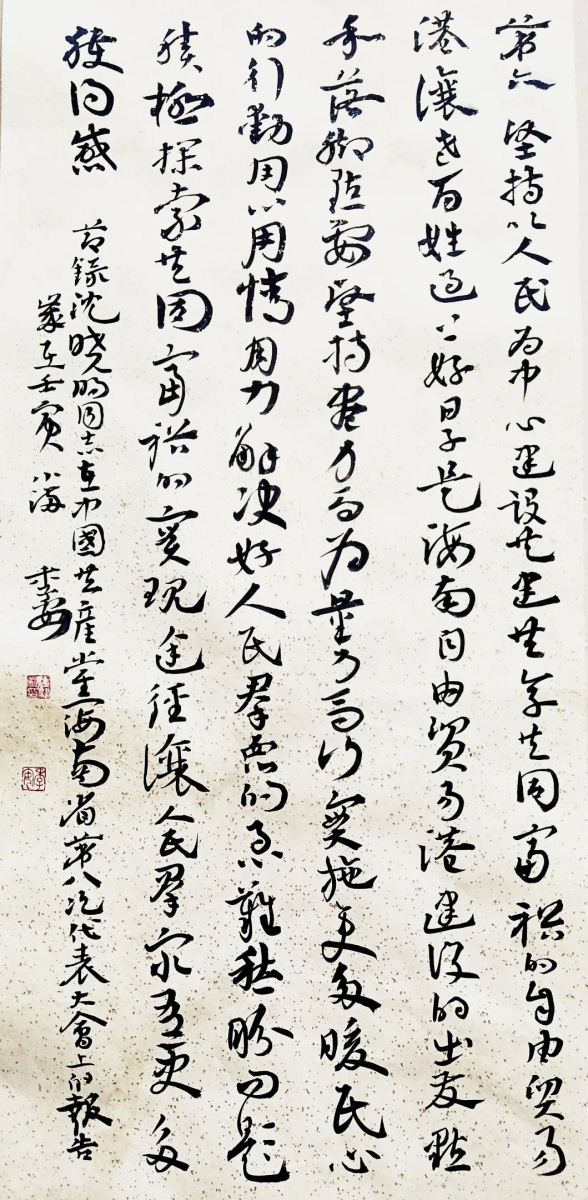 第六坚持以人民为中心建设共建共享共同富裕的自由贸易
港讓老百姓过上好日子是海南自由贸易港建设的出发點
和落脚點要坚持盡力而为量力而行實施更多暖民心
的行動用心用情用力解决好人民群眾的急難愁盼问题
積極探索共同富裕的實现途徑讓人民群眾有更多
获得感
节錄沈晓明同志在中國共産党海南省第八次代表大會上的報告
歲在壬寅 小海